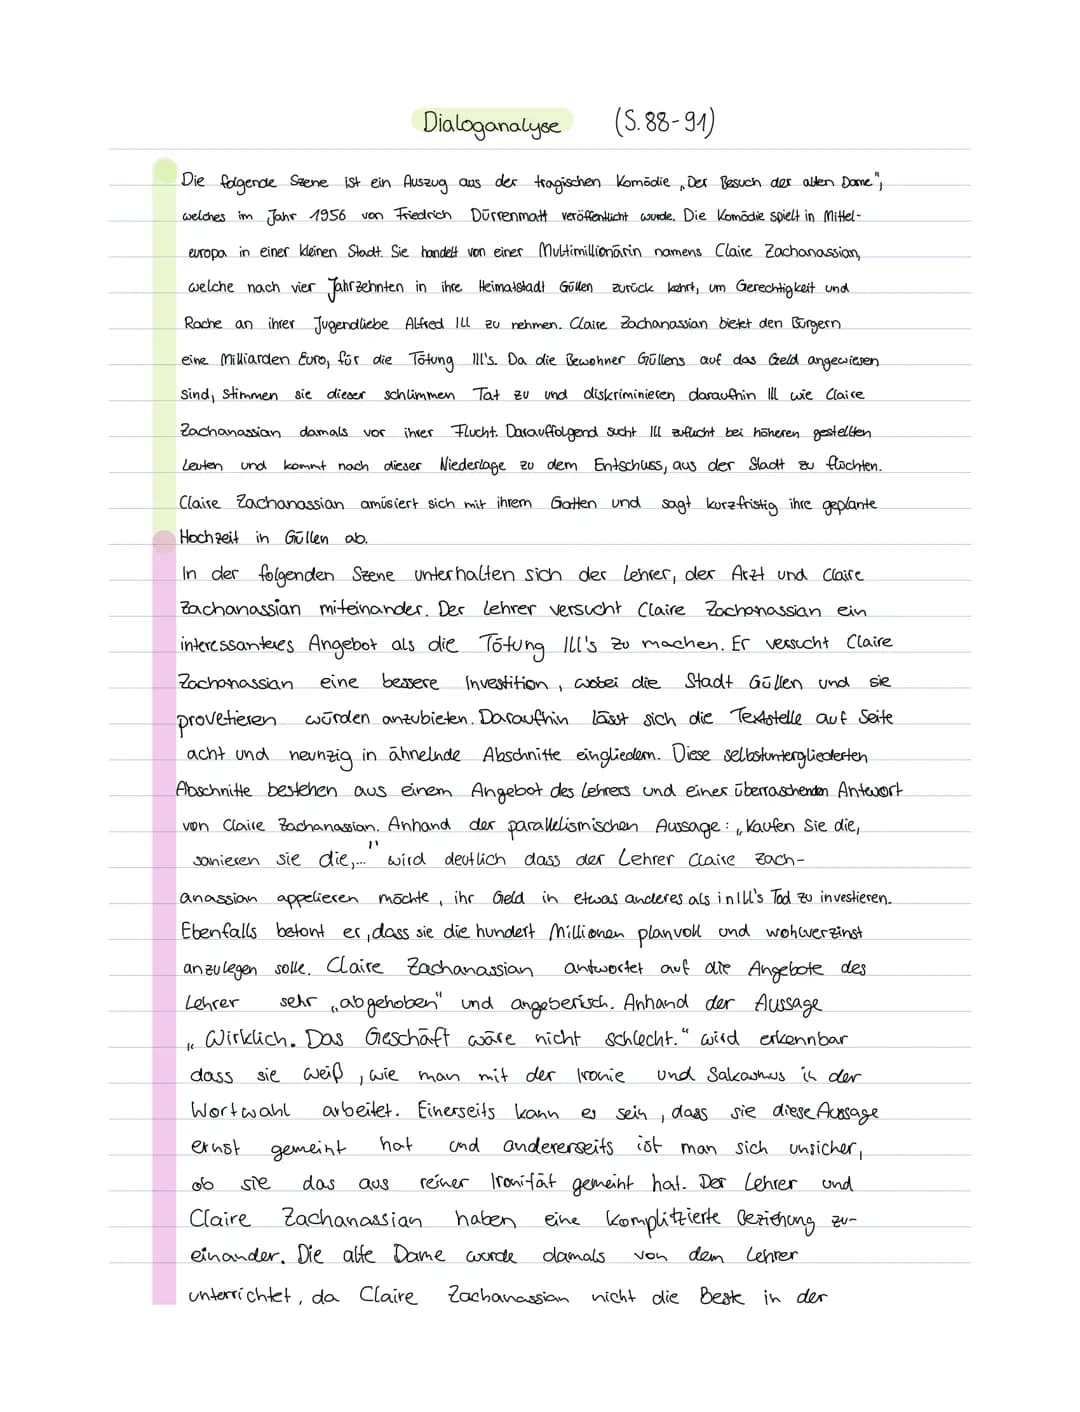 Dialoganalyse (S. 88-91)
Die folgende Szene ist ein Auszug aus der tragischen Komödie „Der Besuch der alten Dame",
welches im Jahr 1956 von Friedrich Dürrenmatt veröffentlicht wurde. Die Komödie spielt in Mittel-
europa in einer kleinen Stadt. Sie handelt von einer Multimillionärin namens Claire Zachanassian,
welche nach vier Jahrzehnten in ihre Heimatstadt Güllen zurück kehrt, um Gerechtigkeit und
Rache an ihrer Jugendliebe Alfred Ill zu nehmen. Claire Zachanassian bietet den Bürgern
eine Milliarden Euro, für die Tötung Ill's. Da die Bewohner Güllens auf das Geld angewiesen
sind, stimmen sie dieser schlimmen Tat zu und diskriminieren daraufhin Ill wie Claire
Zachanassian damals vor ihrer Flucht. Darauffolgend sucht Ill zuflucht bei höheren gestellten
Leuten und kommt nach dieser Niederlage zu dem Entschuss, aus der Stadt zu flüchten.
Claire Zachanassian amüsiert sich mit ihrem Gatten und sagt kurzfristig ihre geplante
Hochzeit in Güllen ab.
In der folgenden Szene unterhalten sich der Lehrer, der Arzt und Claire
Zachanassian miteinander. Der Lehrer versucht Claire Zachanassian ein
interessanteres Angebot als die Tötung Ill's zu machen. Er versucht Claire
Zachanassian eine bessere Investition, wobei die Stadt Güllen und sie
provetieren würden anzubieten. Daraufhin lässt sich die Textstelle auf Seite
acht und neunzig in ähnelnde Abschnitte eingliedern. Diese selbstuntergliederten
Abschnitte bestehen aus einem Angebot des Lehrers und einer überraschenden Antwort
von Claire Zachanassian. Anhand der parallelismischen Aussage: „Kaufen Sie die,
sanieren sie die,..." wird deutlich dass der Lehrer Claire Zach-
anassian appelieren möchte, ihr Geld in etwas anderes als in Ill's Tod zu investieren.
Ebenfalls betont er, dass sie die hundert Millionen planvoll und wohlverzinst
anzulegen solle. Claire Zachanassian antwortet auf die Angebote des
Lehrer sehr „abgehoben" und angeberisch. Anhand der Aussage
„Wirklich. Das Geschäft wäre nicht schlecht." wird erkennbar
dass sie weiß, wie man mit der Ironie und Sakasmus in der
Wortwahl arbeitet. Einerseits kann es sein, dass sie diese Aussage
ernst gemeint hat und andererseits ist man sich unsicher,
ob sie das aus reiner Ironität gemeint hat. Der Lehrer und
Claire Zachanassian haben eine komplitzierte Beziehung zu-
einander. Die alte Dame wurde damals von dem Lehrer
unterrichtet, da Claire Zachanassian nicht die Beste in der